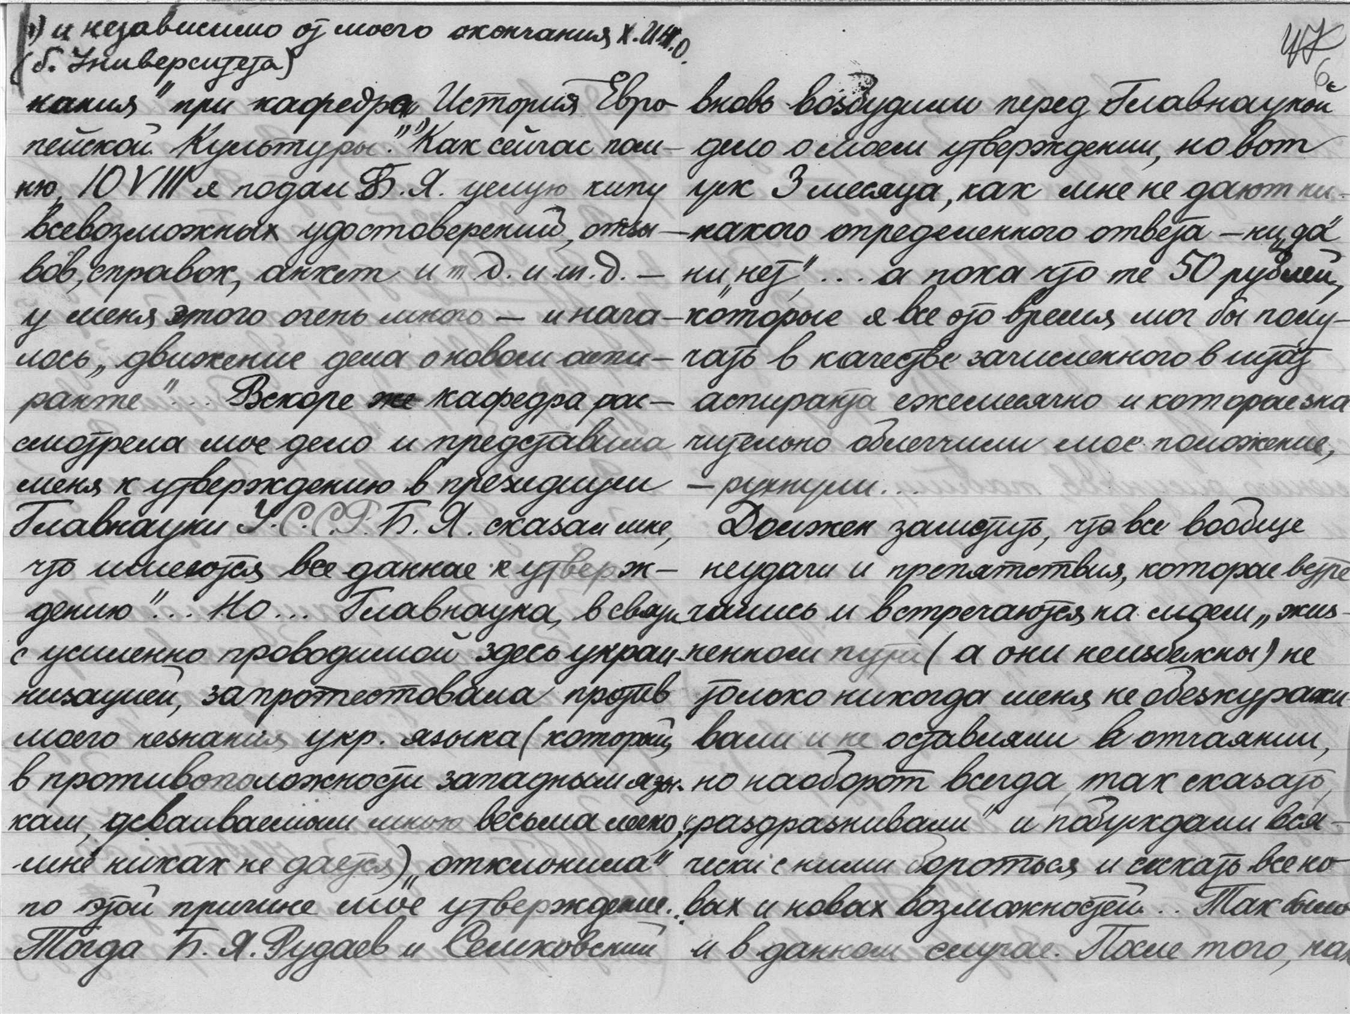 1) и независимо от моего окончания Х.И.Н.О.
(б. Университета)
нания" при кафедре "История Евро-
пейской Культуры". 1) Как сейчас пом-
ню, 10 VIII я подал Б. Я. целую кипу
всевозможных удостоверений, отзы-
вов, справок, анкет и т. д. и т. д. –
у меня этого очень много – и нача-
лось „движение дела о новом аспи-
ранте"... Вскоре же кафедра рас-
смотрела мое дело и представила
меня к утверждению в президиум
Главнауки У.С.С.Р. Б. Я. сказал мне,
что имеются все данные к утверж-
дению"... Но... Главнаука, в связи
с усиленно проводимой здесь украи-
низацией, запротестовала против
моего незнания укр. языка (который,
в противоположность западным язы-
кам, усваиваемым мною весьма легко,
мне никак не дается) „отклонила"
по этой причине мое утверждение...
Тогда Б. Я. Рудаев и Семковский
47
6
вновь возбудили перед Главнаукой
дело о моем утверждении, но вот
уж 3 месяца, как мне не дают ни-
какого определенного ответа – ни „да"
ни „нет",... а пока что те 50 рублей,
которые я все это время мог бы полу-
чать в качестве зачисленного в штат
аспиранта ежемесячно и которые зна
чительно облегчили мое положение,
– рухнули...
Должен заметить, что все вообще
неудачи и препятствия, которые встре
чались и встречаются на моем „жиз-
ненном пути" (а они неизбежны) не
только никогда меня не обескуражи
вали и не оставляли в отчаянии,
но наоборот всегда, так сказать,
„раздразнивали" и побуждали вся-
чески с ними бороться и искать все но-
вых и новых возможностей... Так было
и в данном случае. После того, как